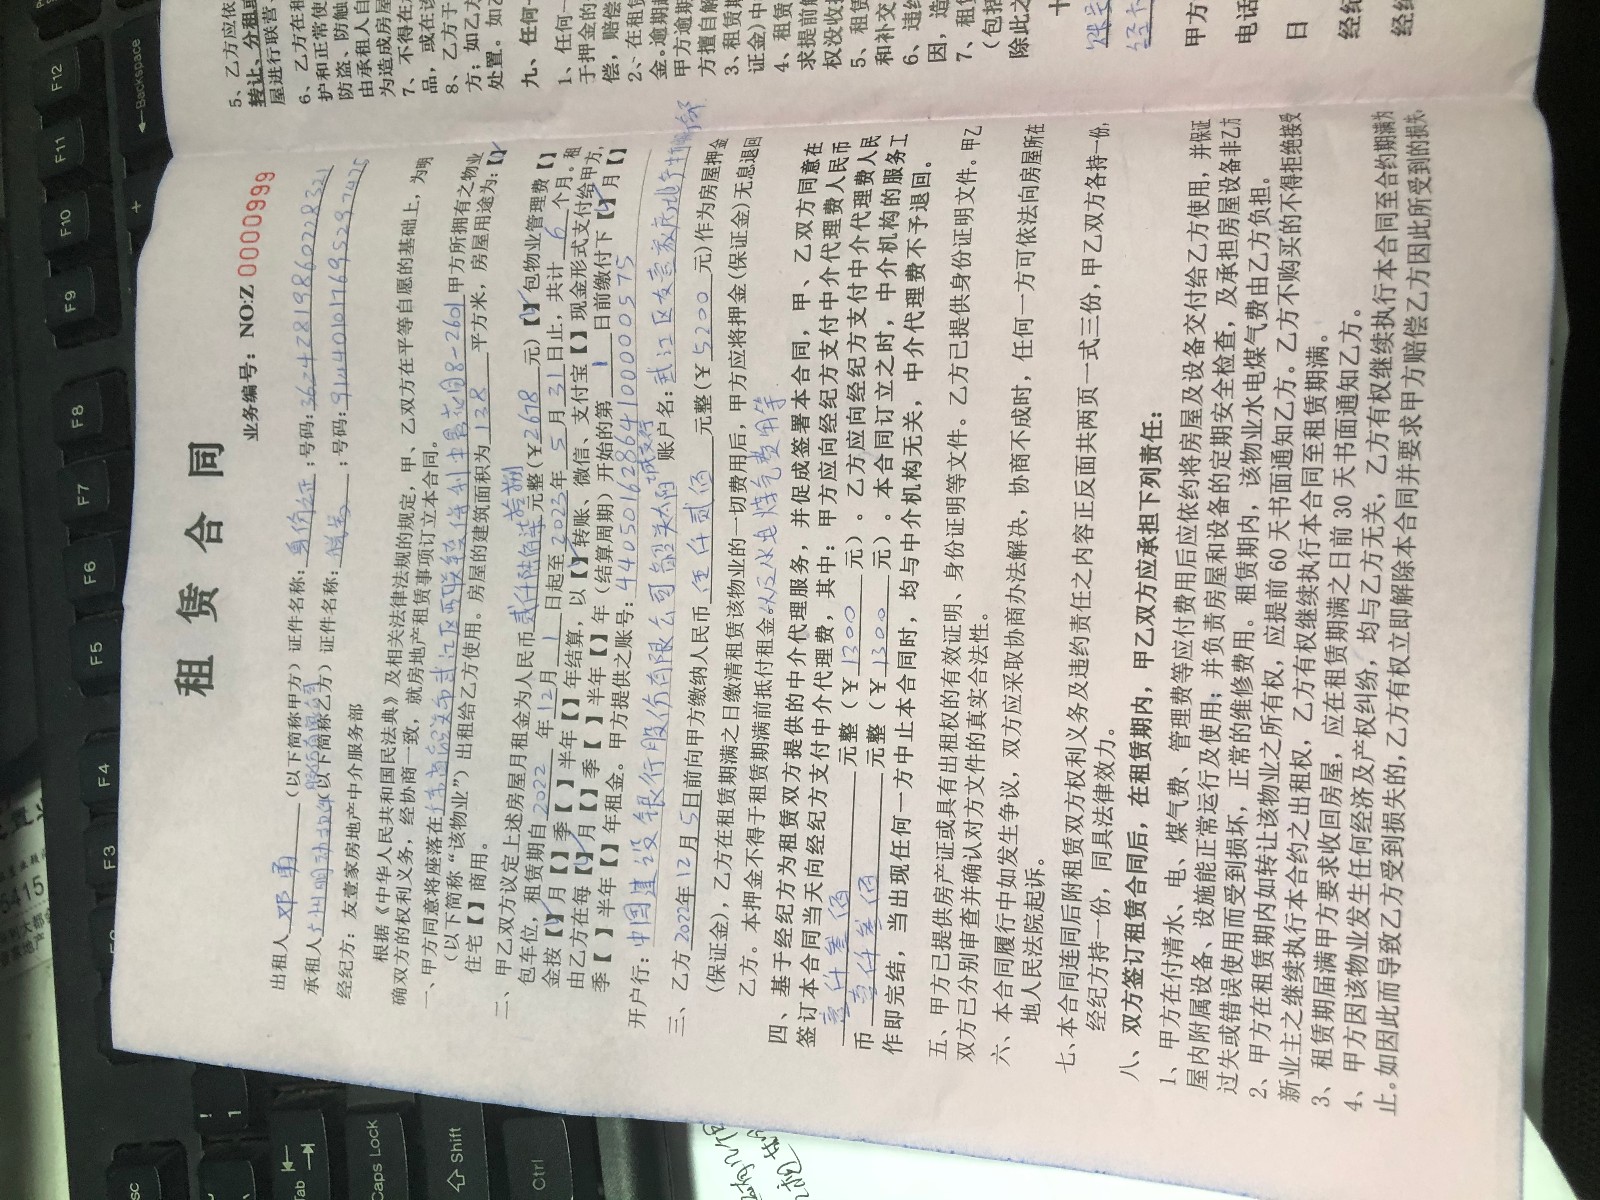 租赁合同
业务编号：NO:Z 0000999
出租人 邓勇 （以下简称甲方）证件名称：身份证；号码：
承租人 （以下简称乙方）证件名称：；号码：
经纪方：友壹家房地产中介服务部
根据《中华人民共和国民法典》及相关法律法规的规定，甲、乙双方在平等自愿的基础上，为明
确双方的权利义务，经协商一致，就房地产租赁事项订立本合同。
一、甲方同意将座落在 8-2601 甲方所拥有之物业
（以下简称“该物业”）出租给乙方使用。房屋的建筑面积为 138 平方米，房屋用途为：【√】
住宅【 】商用。
二、甲乙双方议定上述房屋月租金为人民币 元整(￥2678 元)【√】包物业管理费【 】
包车位，租赁期自 2022 年 12 月 1 日起至 2023 年 5 月 31 日止，共计 6 个月。租
金按【√】月【 】季【 】半年【 】年结算，以【√】转账、微信、支付宝【 】现金形式支付给甲方，
由乙方在每【√】月【 】季【 】半年【 】年（结算周期）开始的第 1 日前缴付下【√】月【 】
季【 】半年【 】年租金。甲方提供之账号：44050162864100000575
开户行：中国建设银行股份有限公司韶关太阳城支行 账户名：武江区友壹家房地产中介服务部
三、乙方 2022 年 12 月 5 日前向甲方缴纳人民币 伍仟贰佰 元整(￥ 5200 元)作为房屋押金
(保证金)，乙方在租赁期满之日缴清租赁该物业的一切费用后，甲方应将押金(保证金)无息退回
乙方。本押金不得于租赁期满前抵付租金以及水电煤气费用等
四、基于经纪方为租赁双方提供的中介代理服务，并促成签署本合同，甲、乙双方同意在
签订本合同当天向经纪方支付中介代理费，其中：甲方应向经纪方支付中介代理费人民币
壹仟叁佰 元整（￥ 1300 元）。乙方应向经纪方支付中介代理费人民
币 壹仟叁佰 元整（￥ 1300 元）。本合同订立之时，中介机构的服务工
作即完结，当出现任何一方中止本合同时，均与中介机构无关，中介代理费不予退回。
五、甲方已提供房产证或具有出租权的有效证明、身份证明等文件。乙方已提供身份证明文件。甲乙
双方已分别审查并确认对方文件的真实合法性。
六、本合同履行中如发生争议，双方应采取协商办法解决，协商不成时，任何一方可依法向房屋所在
地人民法院起诉。
七、本合同连同后附租赁双方权利义务及违约责任之内容正反面共两页一式三份，甲乙双方各持一份，
经纪方持一份，同具法律效力。
八、双方签订租赁合同后，在租赁期内，甲乙双方应承担下列责任：
1、甲方在付清水、电、煤气费、管理费等应付费用后应依约将房屋及设备交付给乙方使用，并保证
屋内附属设备、设施能正常运行及使用；并负责房屋和设备的定期安全检查，及承担房屋设备非乙方
过失或错误使用而受到损坏，正常的维修费用。租赁期内，该物业水电煤气费由乙方负担。
2、甲方在租赁期内如转让该物业之所有权，应提前 60 天书面通知乙方。乙方不购买的不得拒绝接受
新业主之继续执行本合约之出租权，乙方有权继续执行本合同至租赁期满。
3、租赁期届满甲方要求收回房屋，应在租赁期满之日前 30 天书面通知乙方。
4、甲方因该物业发生任何经济及产权纠纷，均与乙方无关，乙方有权继续执行本合同至合约期满为
止。如因此而导致乙方受到损失的，乙方有权立即解除本合同并要求甲方赔偿乙方因此所受到的损失，
5、乙方应依
转让、分租或
屋进行联营、
6、乙方在租
护和正常使
防盗、防触
由承租人自
为造成房屋
7、不得在
品，或在该
8、乙方于
方；如乙方
处置。如乙
九、任何一
1、任何一
于押金的
偿，赔偿
2、在租赁
金，逾期
甲方逾期
方擅自解
3、租赁期
证金)中
4、租赁
求提前解
权没收
5、租赁
和补交
6、违约
因，造
7、租赁
（包括
除此之
十
甲方
电话
日
经纪
经纪